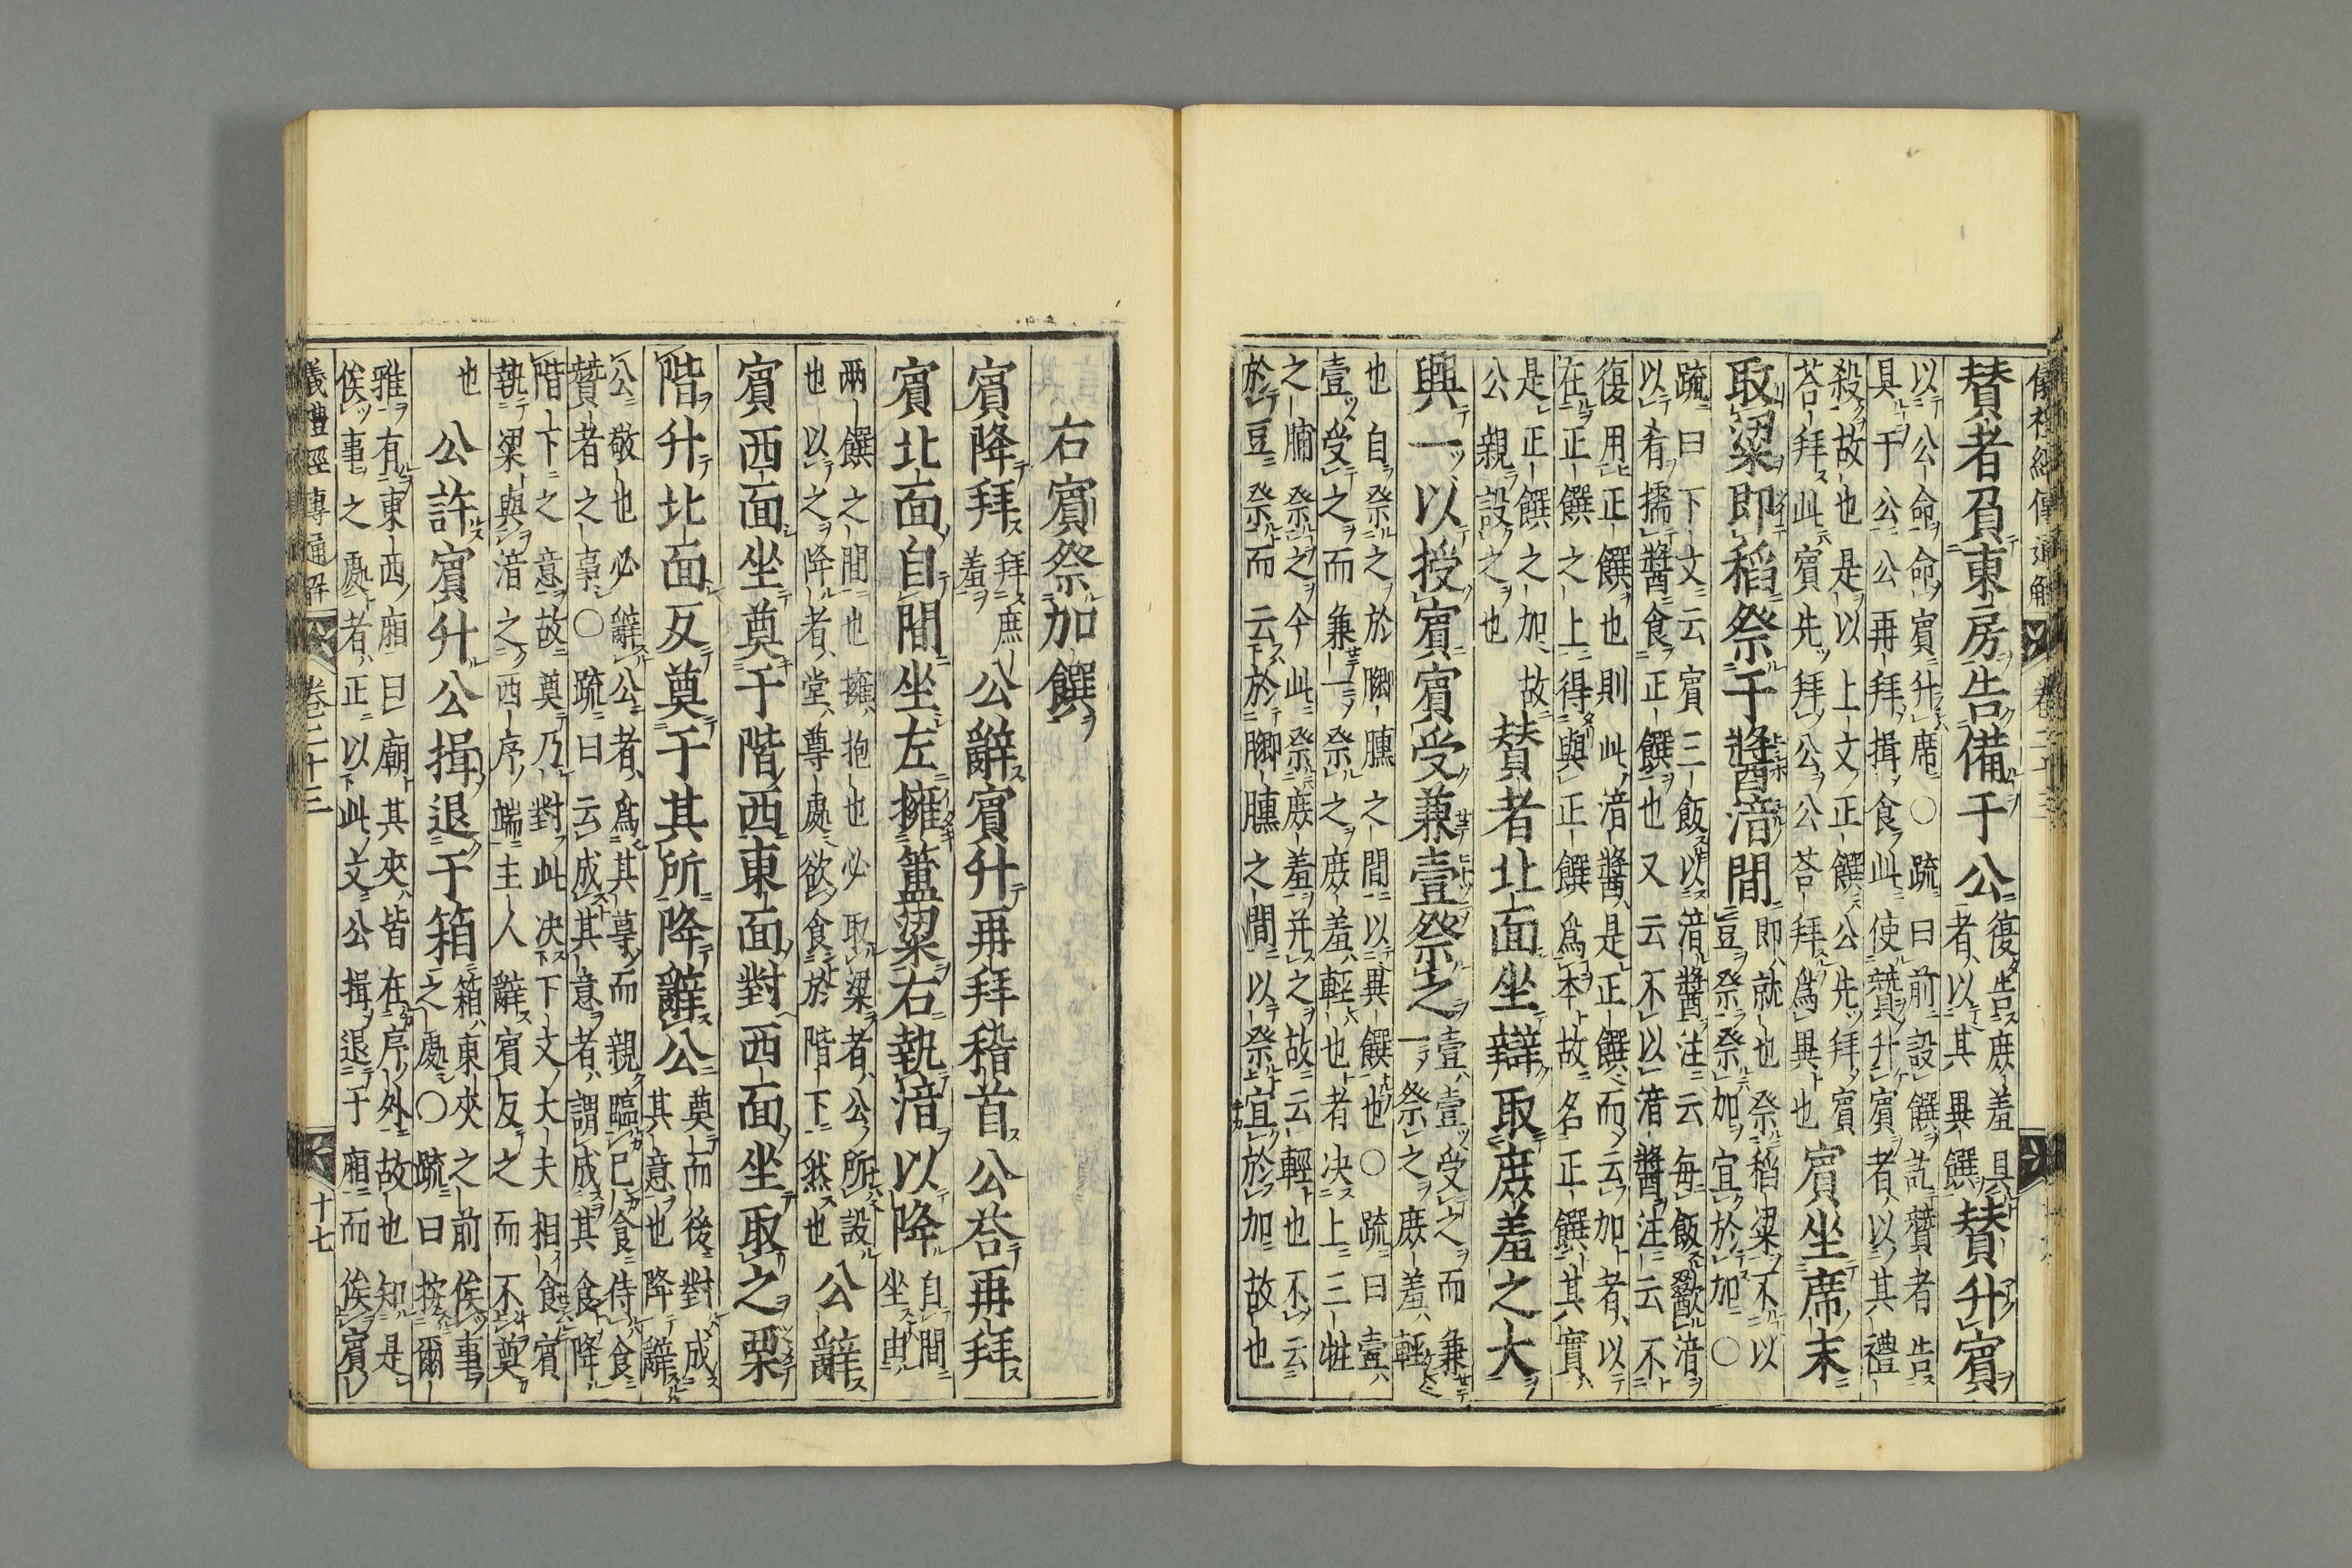 儀禮經傳通解 卷二十三
贊者負東房告備于公 復告庶羞具
者以其異饌 贊升賓
以公命命賓升席○疏曰前設饌訖贊者告
具于公公再拜揖食此使贊升賓者以其禮
殺故也是以上文正饌公先拜賓
荅拜此賓先拜公公荅拜爲異也 賓坐席末
取粱即稻祭于醬湆間 即就也祭稻粱不以
豆祭祭加宜於加○
疏曰下文云賓三飯以湆醬注云每飯歠湆
以肴擩醬食正饌也又云不以湆醬注云不
復用正饌也則此湆醬是正饌而云加者以
在正饌之上得與正饌爲本故名正饌其實
是正饌之加故
公親設之也 贊者北面坐辯取庶羞之大
興一以授賓賓受兼壹祭之 壹壹受之而兼
一祭之庶羞輕
也自祭之於膷臐之間以異饌也○疏曰壹
壹受之而兼一祭之庶羞輕也者决上三牲
之肺祭之今此祭庶羞并之故云輕也不云
於豆祭而云於膷臐之間以祭宜於加故也
右賓祭加饌
賓降拜 拜庶
羞 公辭賓升再拜稽首公荅再拜
賓北面自間坐左擁簠粱右執湆以降 自間
坐由
兩饌之間也擁抱也必取粱者公所設
也以之降者堂尊處欲食於階下然也 公辭
賓西面坐奠于階西東面對西面坐取之栗
階升北面反奠于其所降辭公 奠而後對成
其意也降辭
公敬也必辭公者爲其尊而親臨己食侍食
贊者之事○疏曰云成其意者謂成其食降
階下之意故奠乃對此决下文大夫相食賓
執粱與湆之西序端主人辭賓反之而不奠
也 公許賓升公揖退于箱 箱東夾之前俟事
之處○疏曰按爾
雅有東西廂曰廟其夾皆在序外故也知是
俟事之處者正以此文公揖退于廂而俟賓
儀禮經傳通解 卷二十三 十七